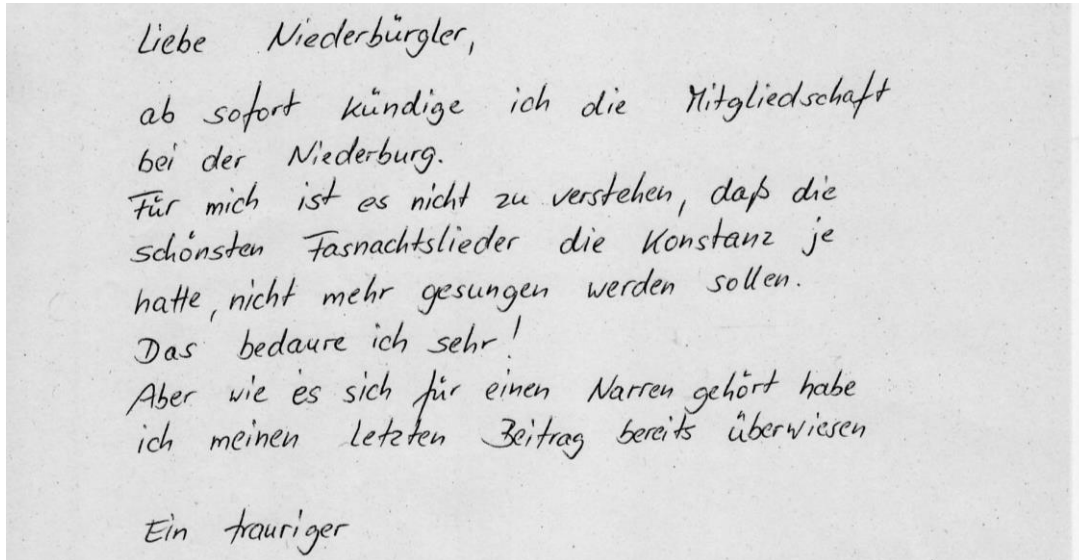 Liebe Niederbürgler,
ab sofort kündige ich die Mitgliedschaft
bei der Niederburg.
Für mich ist es nicht zu verstehen, daß die
schönsten Fasnachtslieder die Konstanz je
hatte, nicht mehr gesungen werden sollen.
Das bedaure ich sehr!
Aber wie es sich für einen Narren gehört habe
ich meinen letzten Beitrag bereits überwiesen
Ein trauriger